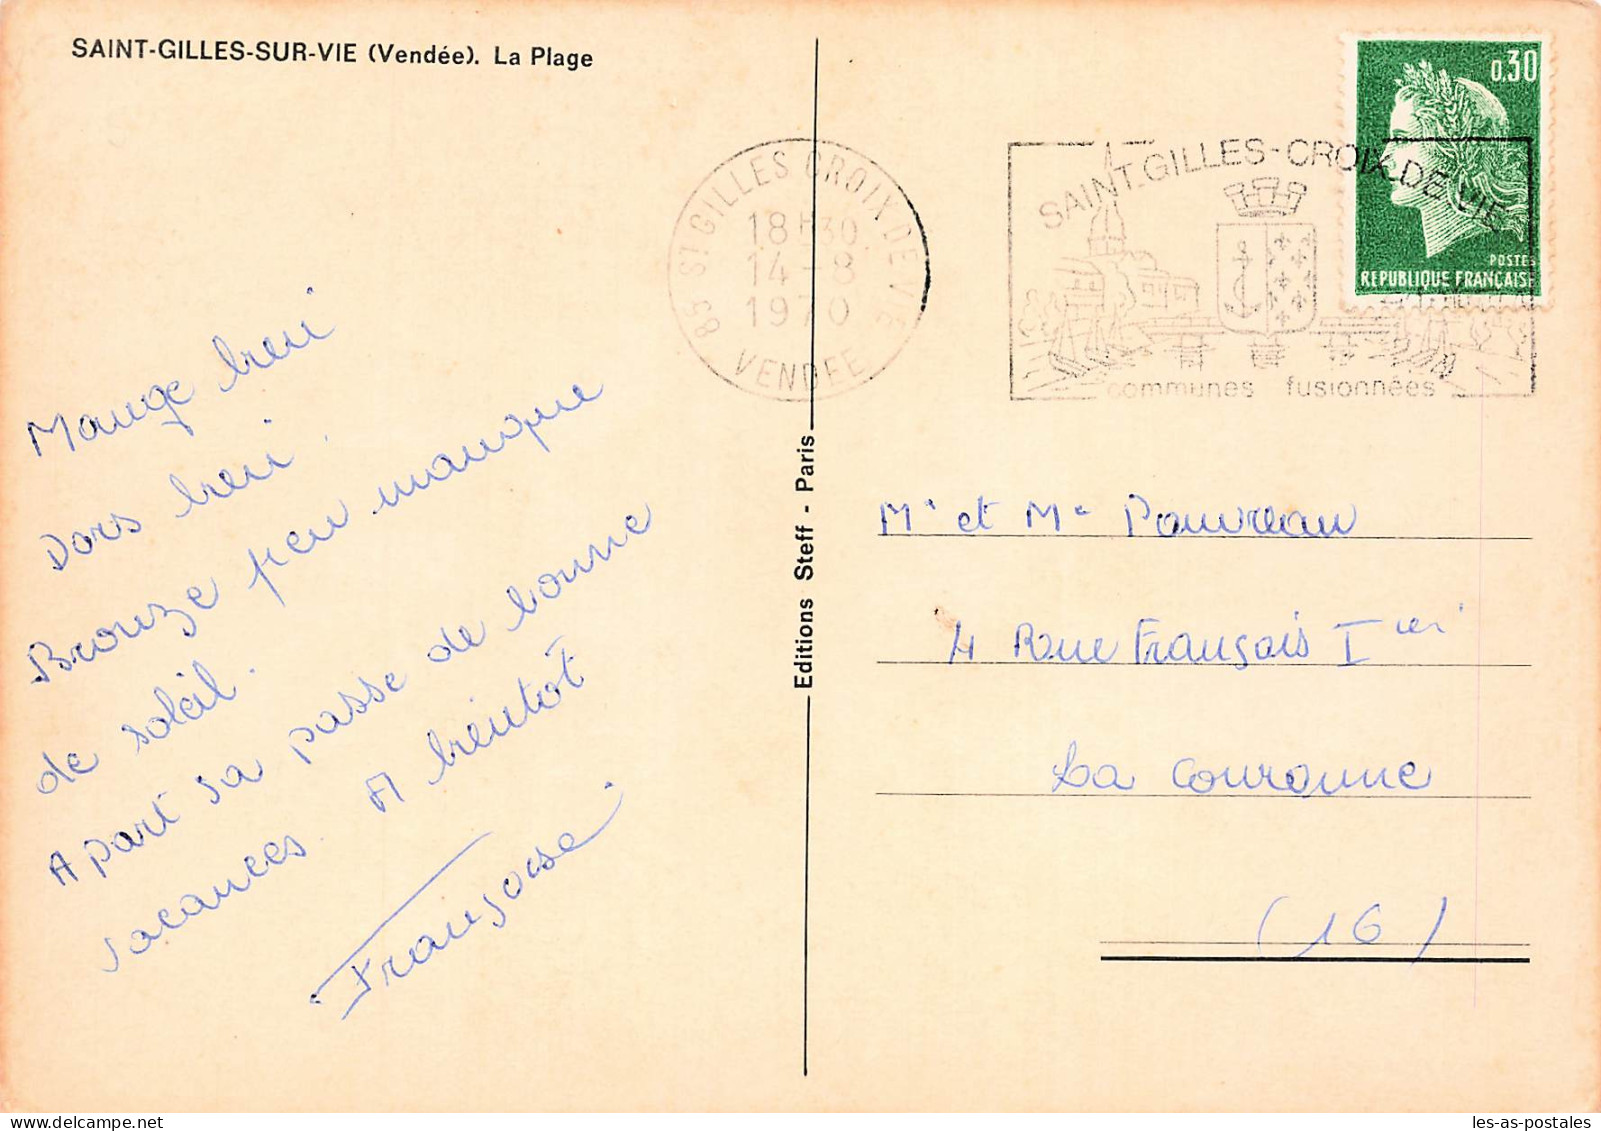 SAINT-GILLES-SUR-VIE (Vendée). La Plage
Mange bien
Dors bien.
Bronze peu manque
de soleil.
A part sa passe de bonne
vacances. A bientôt
Françoise
Editions Steff - Paris
85 ST GILLES CROIX DE VIE
18H30
14-8
1970
VENDEE
SAINT.GILLES-CROIX.DE VIE
communes fusionnées
0,30
POSTES
REPUBLIQUE FRANÇAISE
Mr et Me Pouvreau
4 Rue François Ier
La Couronne
(16)
les-as-postales